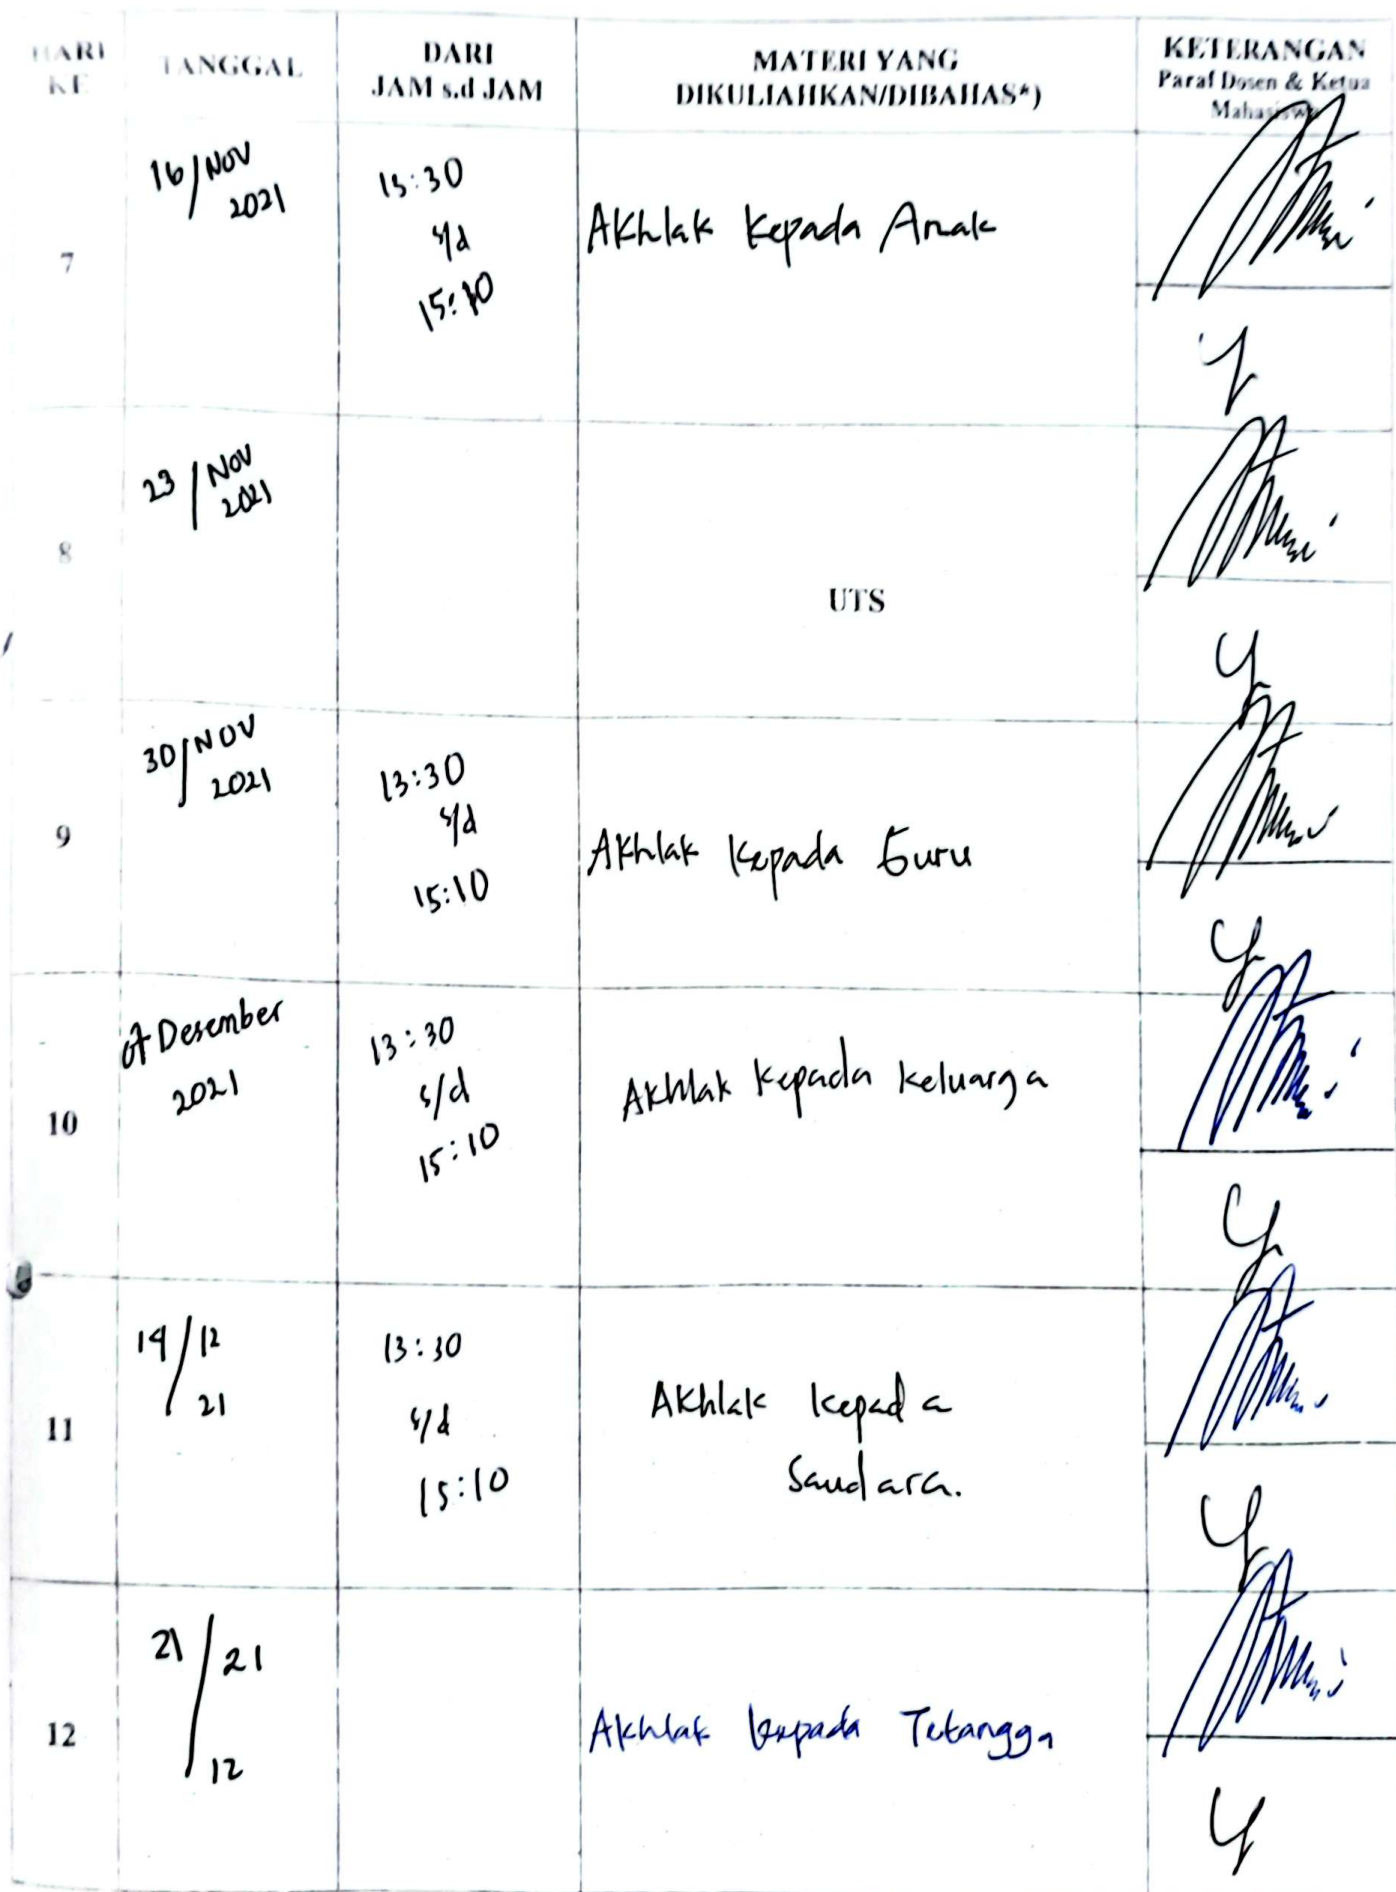 HARI
KE
TANGGAL
DARI
JAM s.d JAM
MATERI YANG
DIKULIAHKAN/DIBAHAS*)
KETERANGAN
Paraf Dosen & Ketua
Mahasiswa
7
16/NOV
2021
13:30
s/d
15:10
Akhlak kepada Anak
8
23/NOV
2021
UTS
9
30/NOV
2021
13:30
s/d
15:10
Akhlak kepada Guru
10
07 Desember
2021
13:30
s/d
15:10
Akhlak kepada keluarga
11
14/12
21
13:30
s/d
15:10
Akhlak kepada
Saudara.
12
21/21
12
Akhlak kepada Tetangga